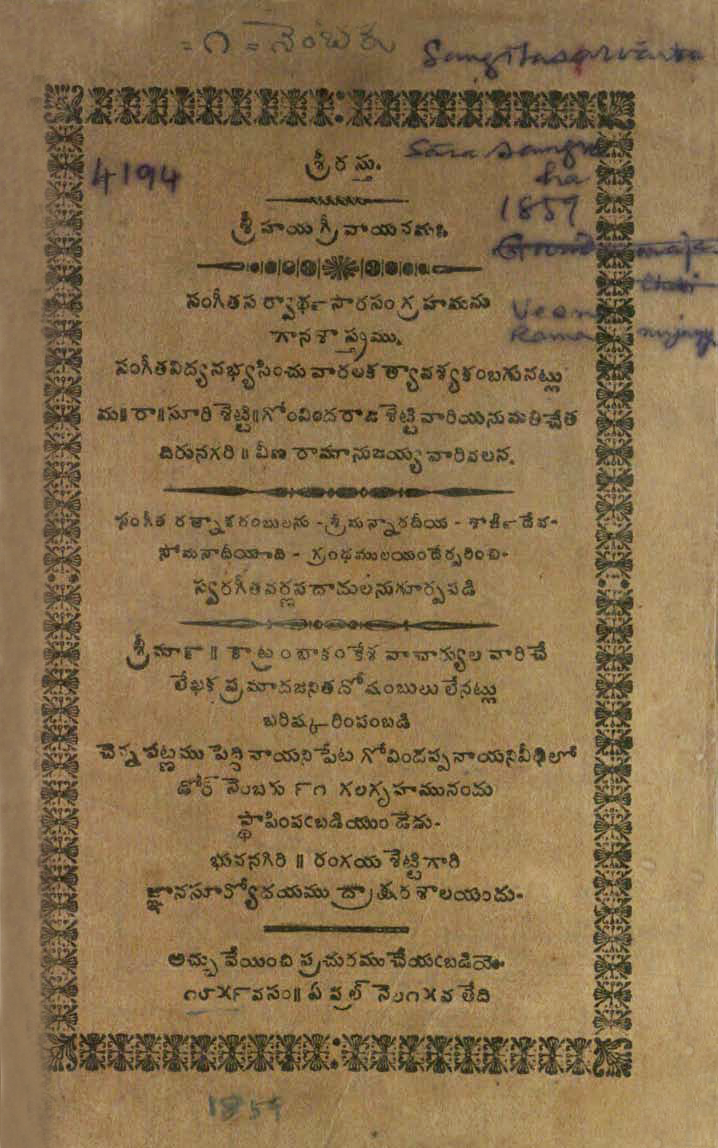 = ౧ = నెంబరు
Sangitasarvartha
శ్రీరస్తు.
Sara sangra
ha
4194
1859
శ్రీహయగ్రీవాయనమః.
Veena
Ramanujayya
సంగీతసర్వార్థసారసంగ్రహమను
గానశాస్త్రము.
సంగీతవిద్యనభ్యసించువారలకత్యావశ్యకంబగునట్లు
మ॥ రా॥ సూరిశెట్టి॥ గోవిందరాజశెట్టివారియనుమతిచేత
దిరునగరి ॥ వీణ రామానుజయ్యవారివలన.
సంగీత రత్నాకరంబులను - శ్రీమన్నారదీయ - శార్ఙదేవ-
సోమనాథీయాది - గ్రంథములయందేర్పరించి-
స్వరగీతవర్ణపదాదులనుగూర్పపడి
శ్రీమాన్ ॥ కాట్రంబాకంకేశవాచార్యులవారిచే
లేఖకప్రమాదజనితదోషంబులు లేనట్లు
బరిష్కరింపంబడి
చెన్నపట్టముపెద్దినాయనిపేట గోవిందప్పనాయనివీథిలో
డోర్ నెంబరు ౯౧ గలగృహమునందు
స్థాపింపఁబడియుండెడు-
భువనగిరి ॥ రంగయశెట్టిగారి
జ్ఞానసూర్యోదయముద్రాక్షరశాలయందు-
అచ్చువేయించి ప్రచురముచేయఁబడియె-
౧౮౫౯వసం॥ ఏప్రల్ నెల౧౫వతేది
1859